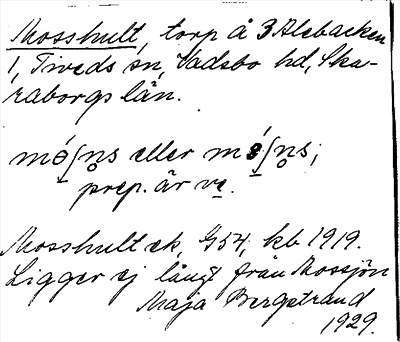 Mosshult, torp å 3 Alebacken
1, Tiveds sn, Vadsbo hd, Ska-
raborgs län.
eller
prep. är
Mosshult ek, G54, kb 1919.
Ligger ej långt från Mossjön
Maja Bergstrand
1929.